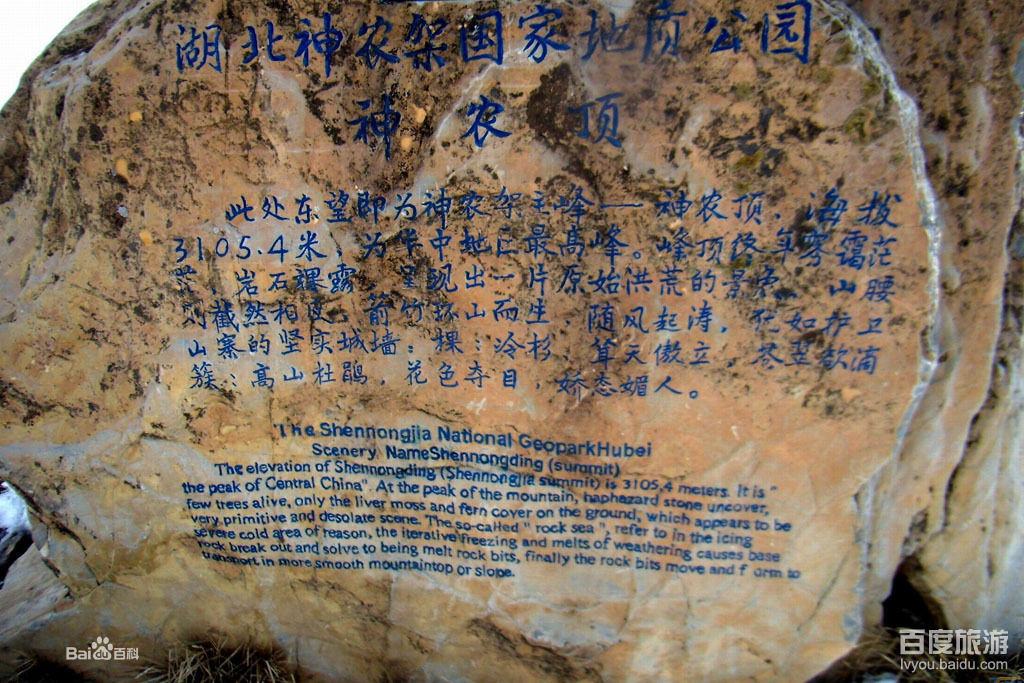 湖北神农架国家地质公园
神农顶
此处东望即为神农架主峰——神农顶，海拔
3105.4米，为华中地区最高峰。峰顶终年雾霭茫
茫，岩石裸露，呈现出一片原始洪荒的景象。山腰
则截然相反，箭竹环山而生，随风起涛，犹如护卫
山寨的坚实城墙；棵棵冷杉，耸天傲立，苍翠欲滴
簇簇高山杜鹃，花色夺目，娇态媚人。
The Shennongjia National GeoparkHubei
Scenery NameShennongding (summit)
The elevation of Shennongding (Shennongjia summit) is 3105.4 meters. It is "
the peak of Central China". At the peak of the mountain, haphazard stone uncover,
few trees alive, only the liver moss and fern cover on the ground, which appears to be
very primitive and desolate scene. The so-called " rock sea ", refer to in the icing
severe cold area of reason, the iterative freezing and melts of weathering causes base
rock break out and solve to being melt rock bits, finally the rock bits move and f orm to
transport in more smooth mountaintop or slope.
Baidu百科
百度旅游
lvyou.baidu.com